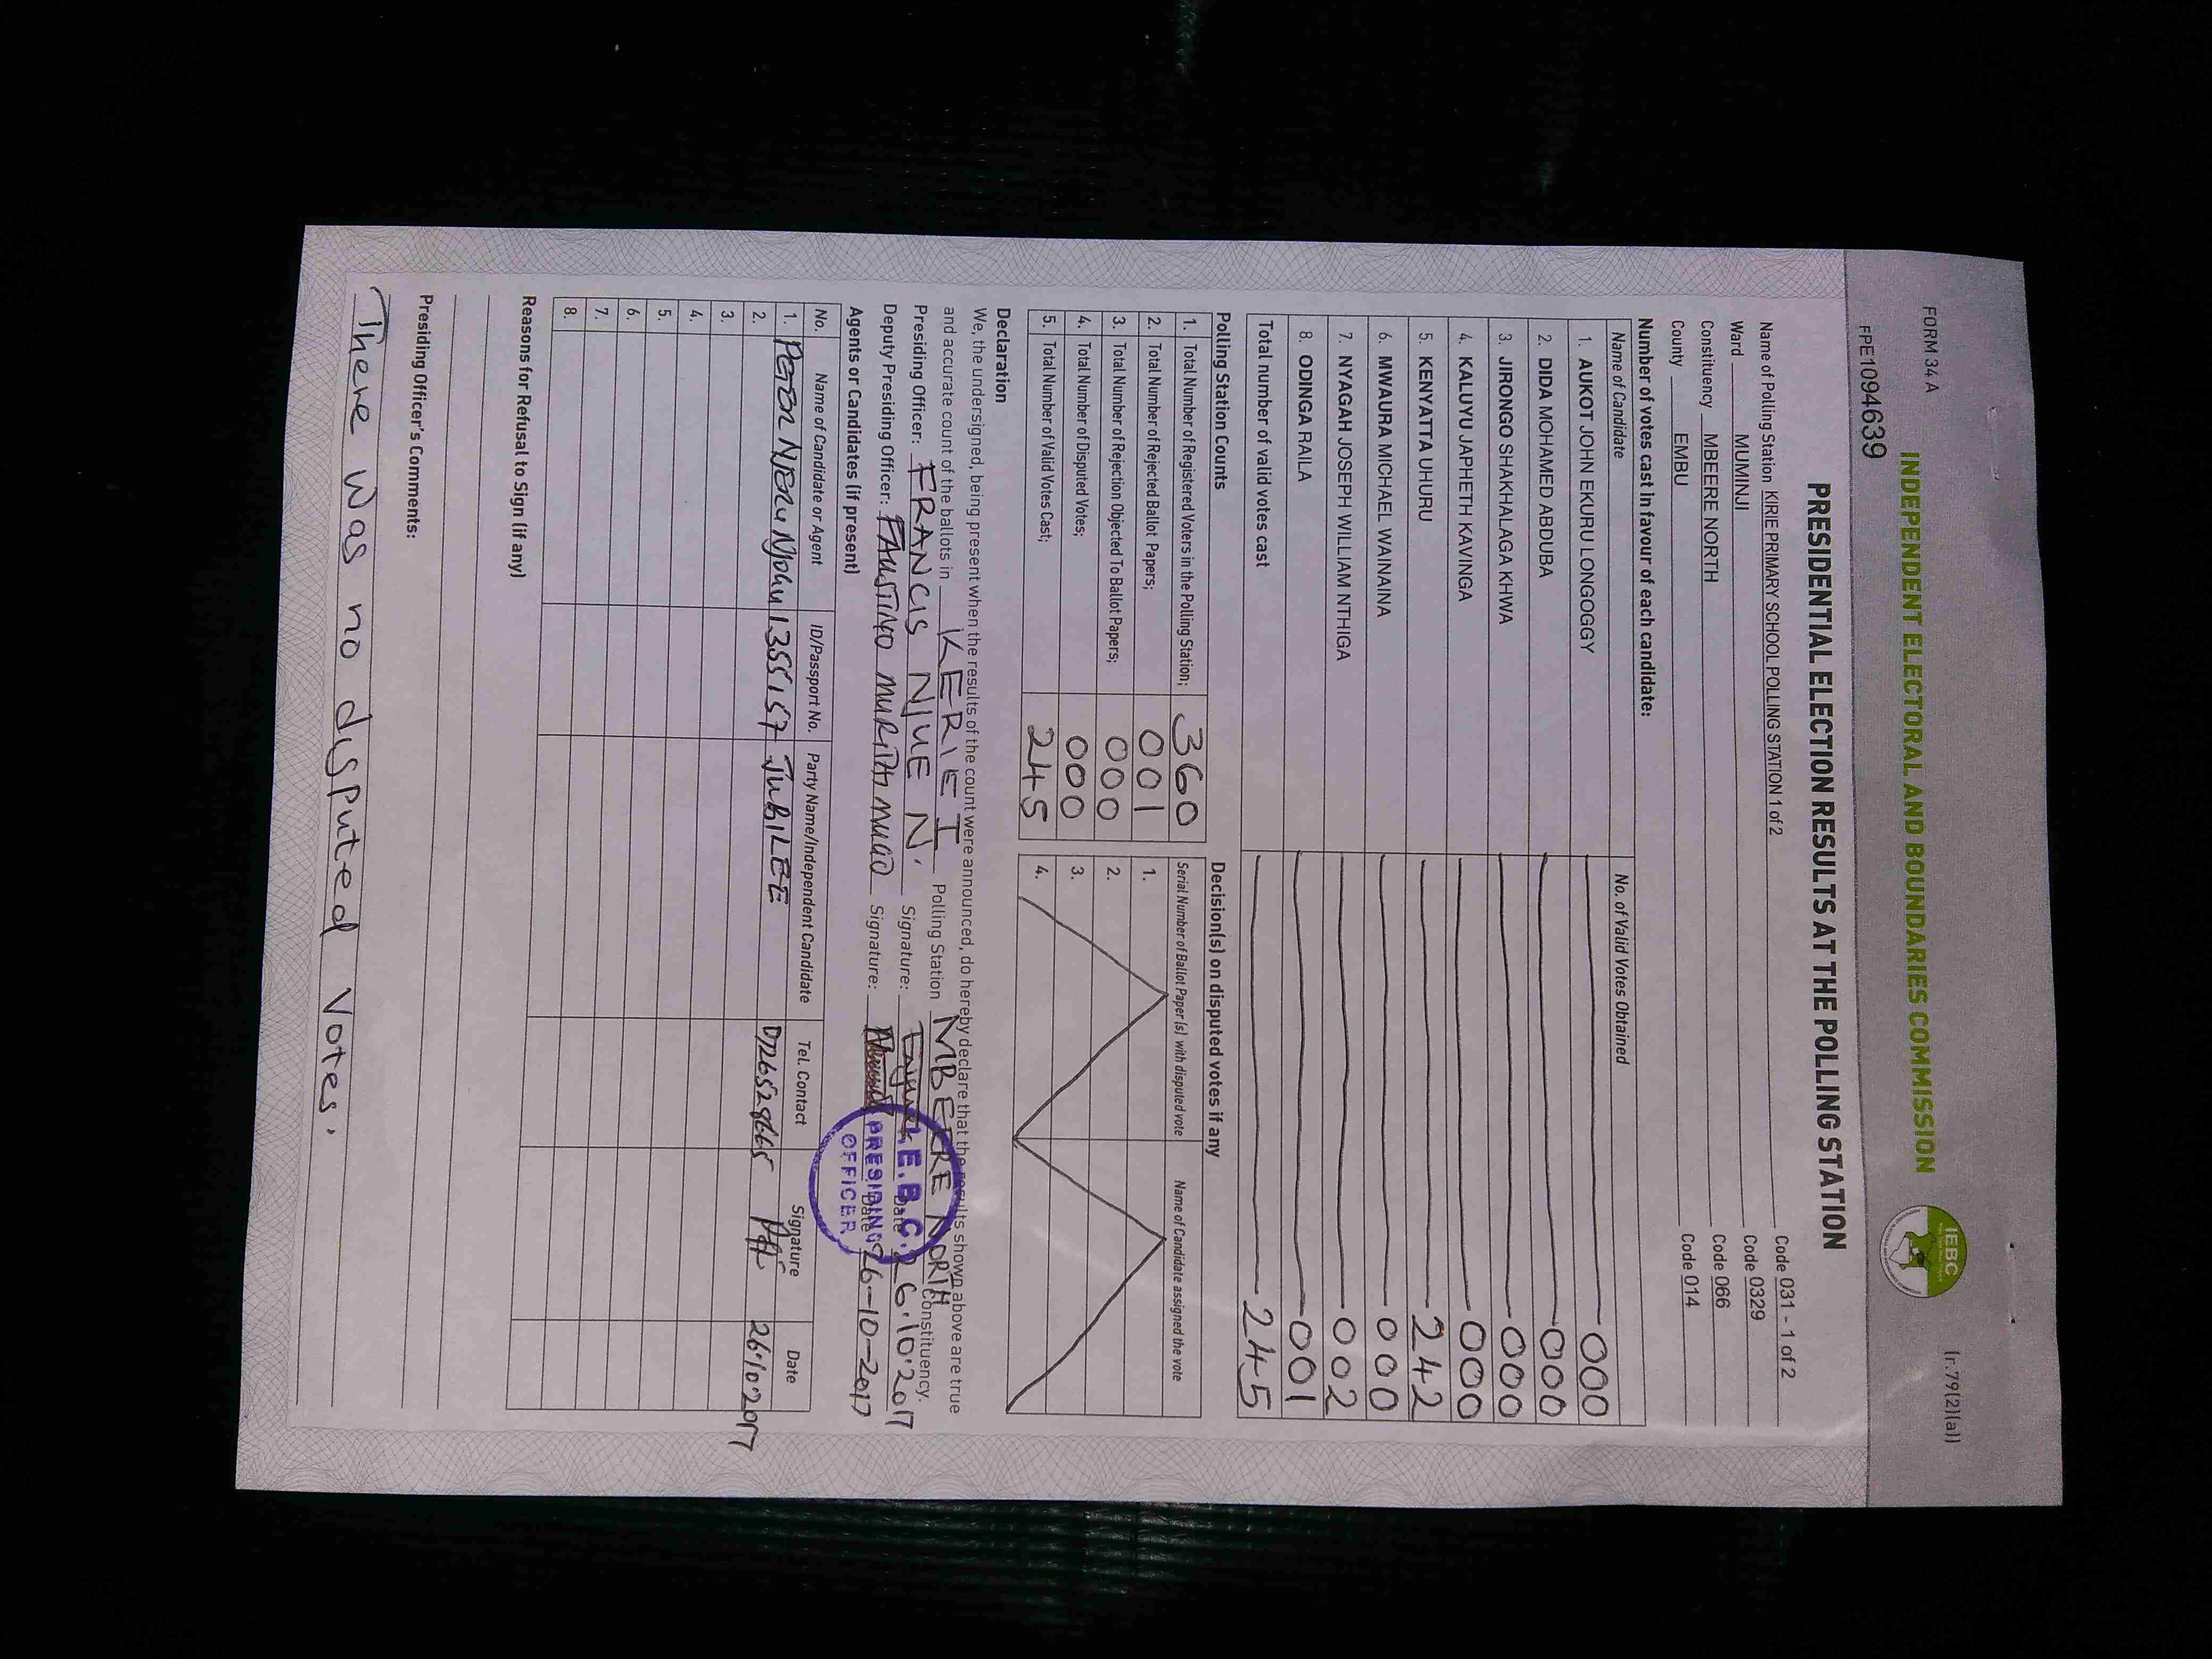 FORM 34 A
(r.79(2)(a))
INDEPENDENT ELECTORAL AND BOUNDARIES COMMISSION
IEBC
FPE1094639
PRESIDENTIAL ELECTION RESULTS AT THE POLLING STATION
Name of Polling Station KIRIE PRIMARY SCHOOL POLLING STATION 1 of 2 Code 031 - 1 of 2
Ward MUMINJI Code 0329
Constituency MBEERE NORTH Code 066
County EMBU Code 014
Number of votes cast in favour of each candidate:
Name of Candidate No. of Valid Votes Obtained
1. AUKOT JOHN EKURU LONGOGGY 000
2. DIDA MOHAMED ABDUBA 000
3. JIRONGO SHAKHALAGA KHWA 000
4. KALUYU JAPHETH KAVINGA 000
5. KENYATTA UHURU 242
6. MWAURA MICHAEL WAINAINA 000
7. NYAGAH JOSEPH WILLIAM NTHIGA 002
8. ODINGA RAILA 001
Total number of valid votes cast 245
Polling Station Counts
1. Total Number of Registered Voters in the Polling Station; 360
2. Total Number of Rejected Ballot Papers; 001
3. Total Number of Rejection Objected To Ballot Papers; 000
4. Total Number of Disputed Votes; 000
5. Total Number of Valid Votes Cast; 245
Decision(s) on disputed votes if any
Serial Number of Ballot Paper (s) with disputed vote Name of Candidate assigned the vote
1.
2.
3.
4.
Declaration
We, the undersigned, being present when the results of the count were announced, do hereby declare that the results shown above are true
and accurate count of the ballots in KERIE I Polling Station MBEERE NORTH Constituency.
Presiding Officer: FRANCIS NJUE N. Signature: Date 26.10.2017
Deputy Presiding Officer: FAUSTINO MURITHI Signature: Date 26-10-2017
I.E.B.C.
PRESIDING
OFFICER
Agents or Candidates (if present)
No. Name of Candidate or Agent ID/Passport No. Party Name/Independent Candidate Tel. Contact Signature Date
1. PETER NJERU NJOHU 1355157 JUBILEE 26.10.2017
2.
3.
4.
5.
6.
7.
8.
Reasons for Refusal to Sign (if any)
Presiding Officer's Comments:
There was no dysputed votes.